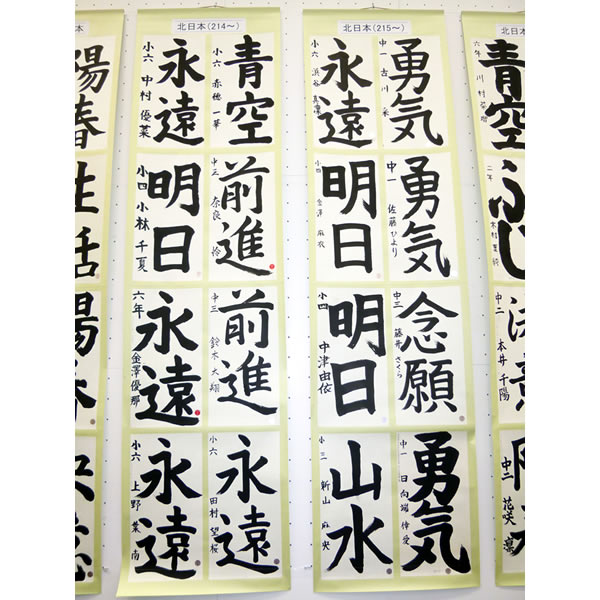 本
陽春
生活
北日本(214～)
青空
小六 赤穂 一華
永遠
小六 中村 優菜
前進
中三 奈良 怜
明日
小四 小林 千夏
前進
中三 鈴木 大翔
永遠
六年 金澤優那
永遠
小六 田村 望桜
永遠
小六 上野 葉南
北日本(215～)
勇気
中一 古川
永遠
小六 浜谷
勇気
中一 佐藤ひより
明日
小四 麻衣
念願
中三 藤井 さくら
明日
小四 中津由依
勇気
中一 日向端
山水
小三 新山 麻央
青空
六年 川村
ふじ
二年 木村
中二 本井 千陽
中二 花咲 凛